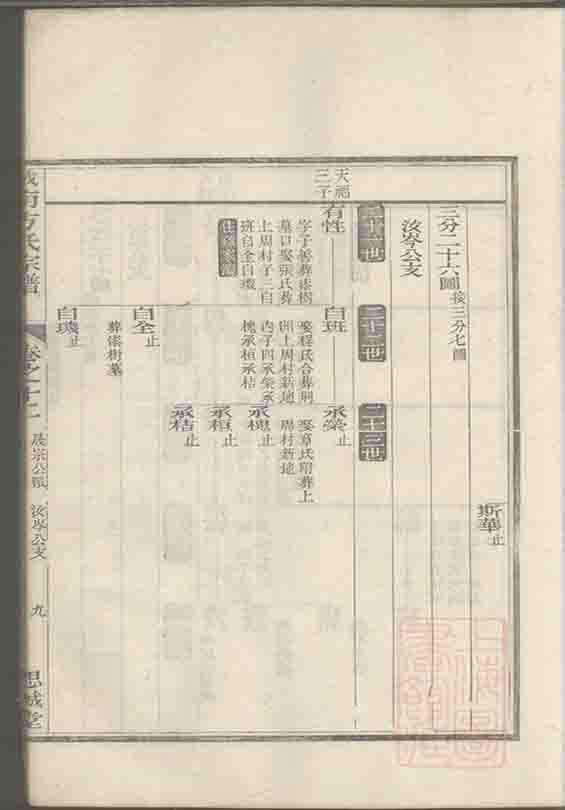 斯華止
三分二十六圖接三分七圖
汝岑公支
二十一世
二十二世
二十三世
天祀
三子
有性
字子善葬漆樹
墓口娶張氏葬
上周村子三自
班自全自璣
自班
娶程氏合葬荆
洲上周村新地
内子四承榮承
槐承桓承桔
承榮止
娶章氏附葬上
周村新地
承槐止
承桓止
承桔止
自全止
葬漆樹墓
自璣止
方氏宗譜
卷之十二
晟宗公派
汝岑公支
九
思誠堂